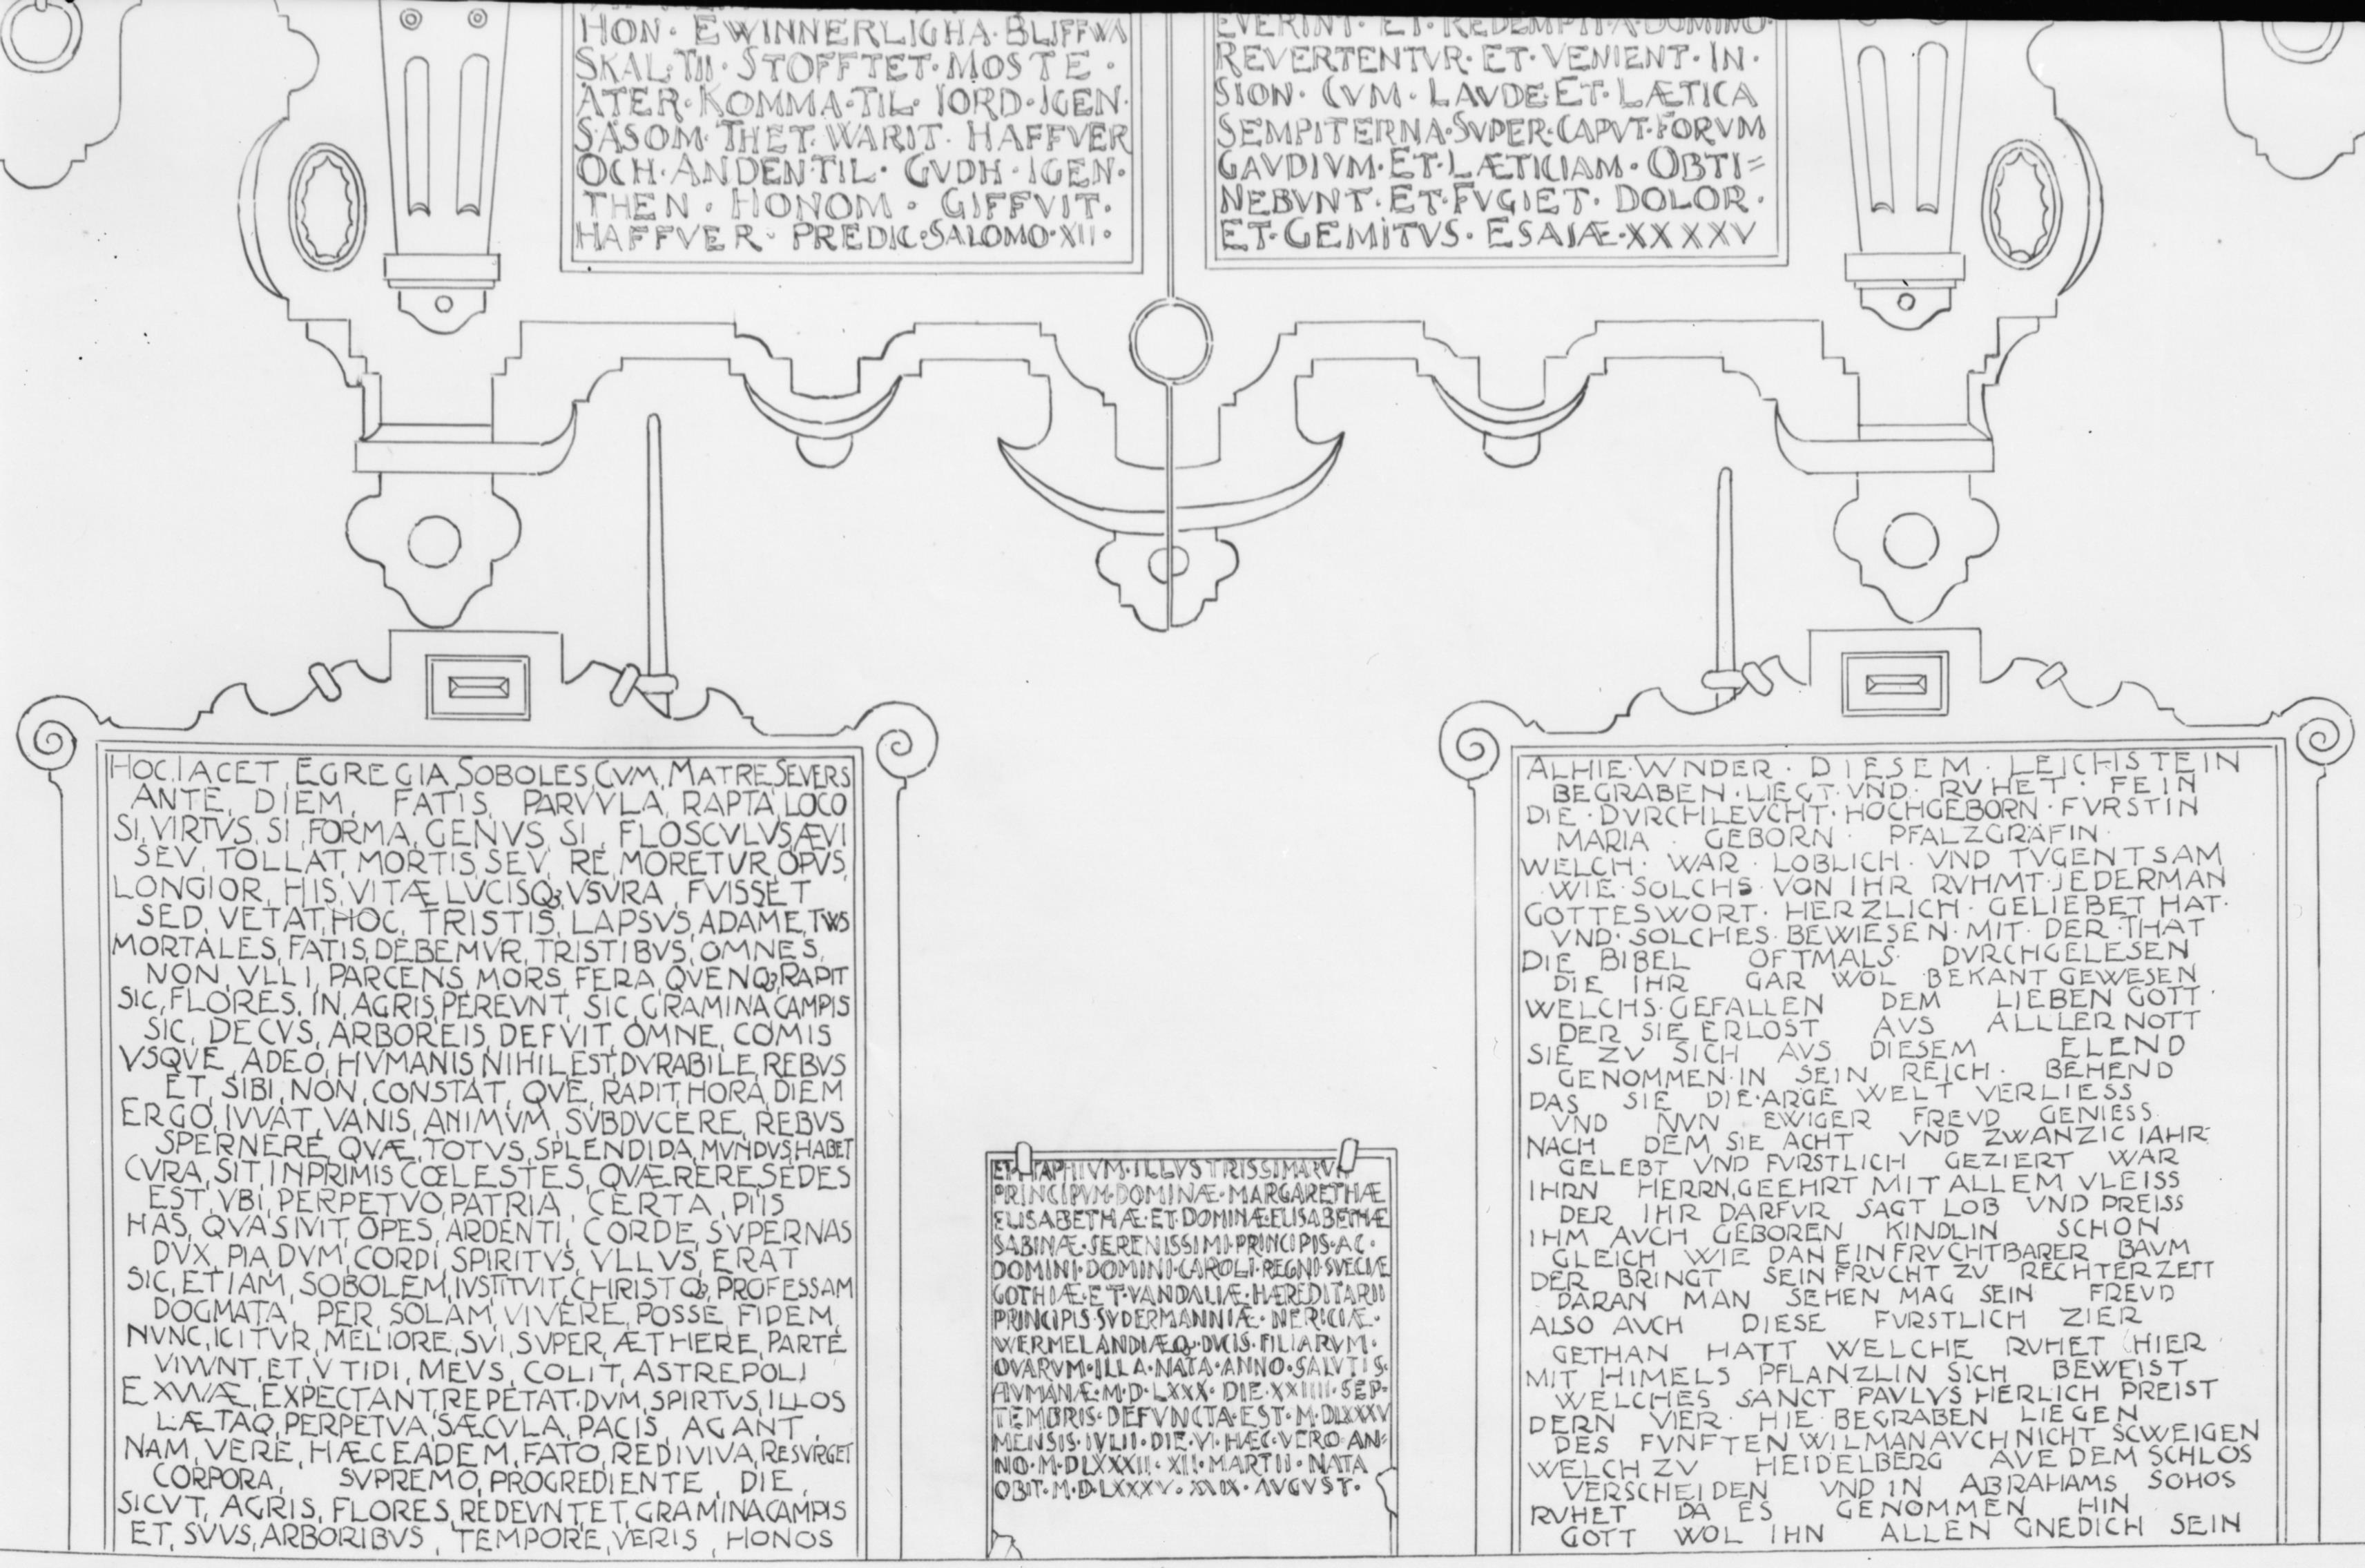 HON · EWINNERLIGHA · BLIFFWA
SKAL · TII · STOFFTET · MOSTE ·
ATER · KOMMA · TIL · IORD · IGEN ·
SASOM · THET · WARIT · HAFFVER
OCH · ANDEN · TIL · GVDH · IGEN ·
THEN · HONOM · GIFFVIT ·
HAFFVER · PREDIC · SALOMO · XII ·
EVERINT · ET · REDEMPTI · A · DOMINO ·
REVERTENTVR · ET · VENIENT · IN ·
SION · CVM · LAVDE · ET · LÆTICA
SEMPITERNA · SVPER · CAPVT · FORVM
GAVDIVM · ET · LÆTICIAM · OBTI=
NEBVNT · ET · FVGIET · DOLOR ·
ET · GEMITVS · ESAIÆ · XXXXV
HOC, IACET, EGREGIA, SOBOLES, CVM, MATRE, SEVERS
ANTE, DIEM, FATIS, PARVVLA, RAPTA, LOCO
SI, VIRTVS, SI, FORMA, GENVS, SI, FLOSCVLVS, ÆVI
SEV, TOLLAT, MORTIS, SEV, RE, MORETVR, OPVS,
LONGIOR, HIS, VITÆ LVCISQ3, VSVRA, FVISSET
SED, VETAT, HOC, TRISTIS, LAPSVS, ADAME, TWS
MORTALES, FATIS, DEBEMVR, TRISTIBVS, OMNES,
NON, VLLI, PARCENS, MORS, FERA, QVENQ3, RAPIT
SIC, FLORES, IN, AGRIS, PEREVNT, SIC, GRAMINA CAMPIS
SIC, DECVS, ARBOREIS, DEFVIT, OMNE, COMIS
VSQVE, ADEO, HVMANIS, NIHIL EST, DVRABILE, REBVS
ET, SIBI, NON, CONSTAT, QVE, RAPIT, HORA, DIEM
ERGO, IVVAT, VANIS, ANIMVM, SVBDVCERE, REBVS
SPERNERE, QVÆ, TOTVS, SPLENDIDA, MVNDVS, HABET
CVRA, SIT, INPRIMIS CŒLESTES, QVÆRERE, SEDES
EST, VBI, PERPETVO, PATRIA, CERTA, PIIS
HAS, QVASIVIT, OPES, ARDENTI, CORDE, SVPERNAS
DVX, PIA, DVM, CORDI, SPIRITVS, VLLVS, ERAT
SIC, ETIAM, SOBOLEM, IVSTITVIT, CHRISTQ3, PROFESSAM
DOGMATA, PER, SOLAM, VIVERE, POSSE, FIDEM,
NVNC, ICITVR, MELIORE, SVI, SVPER, ÆTHERE, PARTE
VIVVNT, ET, VTIDI, MEVS, COLIT, ASTREPOLI
EXVVIÆ, EXPECTANT, REPETAT, DVM, SPIRTVS, ILLOS
LÆTAQ, PERPETVA, SÆCVLA, PACIS, AGANT,
NAM, VERE, HÆC EADEM, FATO, REDIVIVA, RESVRGET
CORPORA, SVPREMO, PROGREDIENTE, DIE,
SICVT, AGRIS, FLORES, REDEVNT ET, GRAMINA CAMPIS
ET, SVVS, ARBORIBVS, TEMPORE, VERIS, HONOS
EPITAPHIVM · ILLVSTRISSIMARVM
PRINCIPVM · DOMINÆ · MARGARETHÆ
ELISABETHÆ · ET · DOMINÆ · ELISABETHÆ
SABINÆ · SERENISSIMI · PRINCIPIS · AC ·
DOMINI · DOMINI · CAROLI · REGNI · SVECIÆ
GOTHIÆ · ET · VANDALIÆ · HÆREDITARII
PRINCIPIS · SVDERMANNIÆ · NERICIÆ ·
WERMELANDIÆQ3 · DVCIS · FILIARVM ·
QVARVM · ILLA · NATA · ANNO · SALVTIS ·
HVMANÆ · M · D · LXXX · DIE · XXIIII · SEP ·
TEMBRIS · DEFVNCTA · EST · M · DLXXXV
MENSIS · IVLII · DIE · VI · HÆC · VERO · AN=
NO · M · DLXXXII · XII · MARTII · NATA
OBIT · M · D · LXXXV · XXIX · AVGVST ·
ALHIE · WNDER · DIESEM · LEICHSTEIN
BEGRABEN · LIEGT · VND · RVHET · FEIN
DIE · DVRCHLEVCHT · HOCHGEBORN · FVRSTIN
MARIA · GEBORN · PFALZGRÄFIN ·
WELCH · WAR · LOBLICH · VND TVGENTSAM
WIE · SOLCHS · VON IHR RVHMT · JEDERMAN
GOTTESWORT · HERZLICH · GELIEBET HAT ·
VND · SOLCHES · BEWIESEN · MIT · DER · THAT
DIE BIBEL OFTMALS DVRCHGELESEN
DIE IHR GAR WOL BEKANT GEWESEN
WELCHS · GEFALLEN DEM LIEBEN GOTT ·
DER SIE ERLOST AVS ALLLER NOTT
SIE ZV SICH AVS DIESEM ELEND
GENOMMEN · IN SEIN REICH · BEHEND
DAS SIE DIE · ARGE WELT VERLIESS
VND NVN EWIGER FREVD GENIESS
NACH DEM SIE ACHT VND ZWANZIC IAHR
GELEBT VND FVRSTLICH GEZIERT WAR
IHRN HERRN, GEEHRT MIT ALLEM VLEISS
DER IHR DARFVR SAGT LOB VND PREISS
IHM AVCH GEBOREN KINDLIN SCHON
GLEICH WIE DAN EIN FRVCHTBARER BAVM
DER BRINGT SEIN FRVCHT ZV RECHTER ZETT
DARAN MAN SEHEN MAG SEIN FREVD
ALSO AVCH DIESE FVRSTLICH ZIER
GETHAN HATT WELCHE RVHET HIER
MIT HIMELS PFLANZLIN SICH BEWEIST
WELCHES SANCT PAVLVS HERLICH PREIST
DERN VIER · HIE BEGRABEN LIEGEN
DES FVNFTEN WILMAN AVCH NICHT SCWEIGEN
WELCH ZV HEIDELBERG AVE DEM SCHLOS
VERSCHEIDEN VND IN ABRAHAMS SOHOS
RVHET DA ES GENOMMEN HIN
GOTT WOL IHN ALLEN GNEDICH SEIN